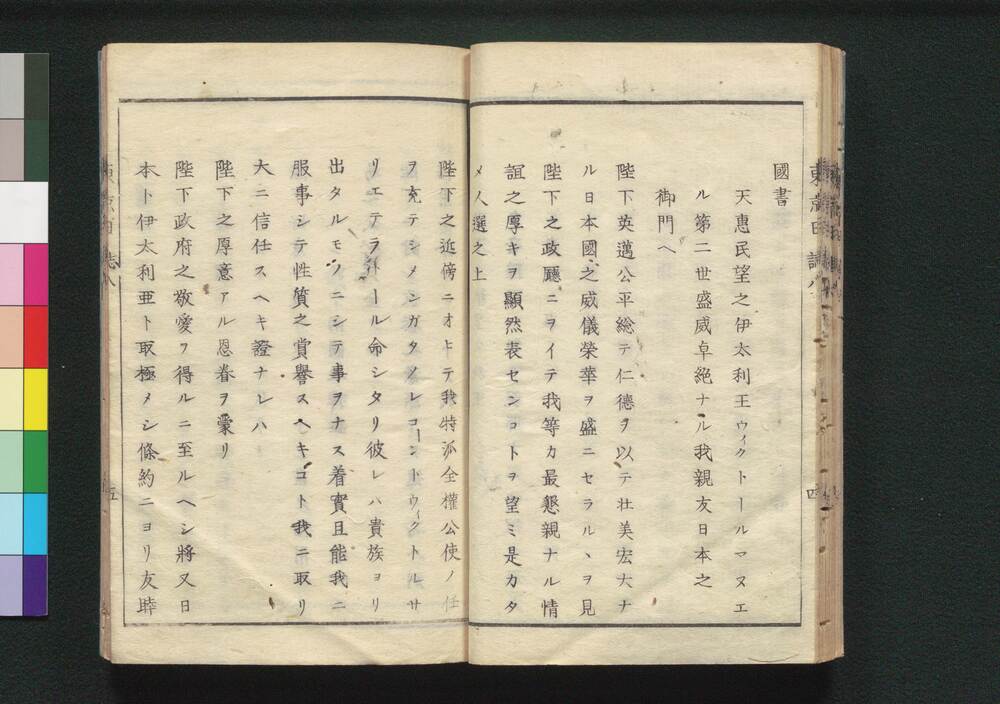 國書
天惠民望之伊太利王ウィクトールマヌエ
ル第二世盛威卓絶ナル我親友日本之
御門ヘ
陛下英邁公平総テ仁德ヲ以テ壮美宏大ナ
ル日本國之威儀榮華ヲ盛ニセラルヽヲ見
陛下之政廳ニヲイテ我等カ最懇親ナル情
誼之厚キヲ顯然表センコトヲ望ミ是カタ
メ人選之上
陛下之近傍ニオヒテ我特派全權公使ノ任
ヲ充テシメンガタメレコーントウィクトルサ
リエテラトール命シタリ彼レハ貴族ヨリ
出タルモノニシテ事ヲナス着實且能我ニ
服事シテ性質之賞譽スヘキコト我ニ取リ
大ニ信任スヘキ證ナレハ
陛下之厚意アル恩眷ヲ蒙リ
陛下政府之敬愛ヲ得ルニ至ルヘシ將又日
本ト伊太利亜ト取極メシ條約ニヨリ友睦
四
五